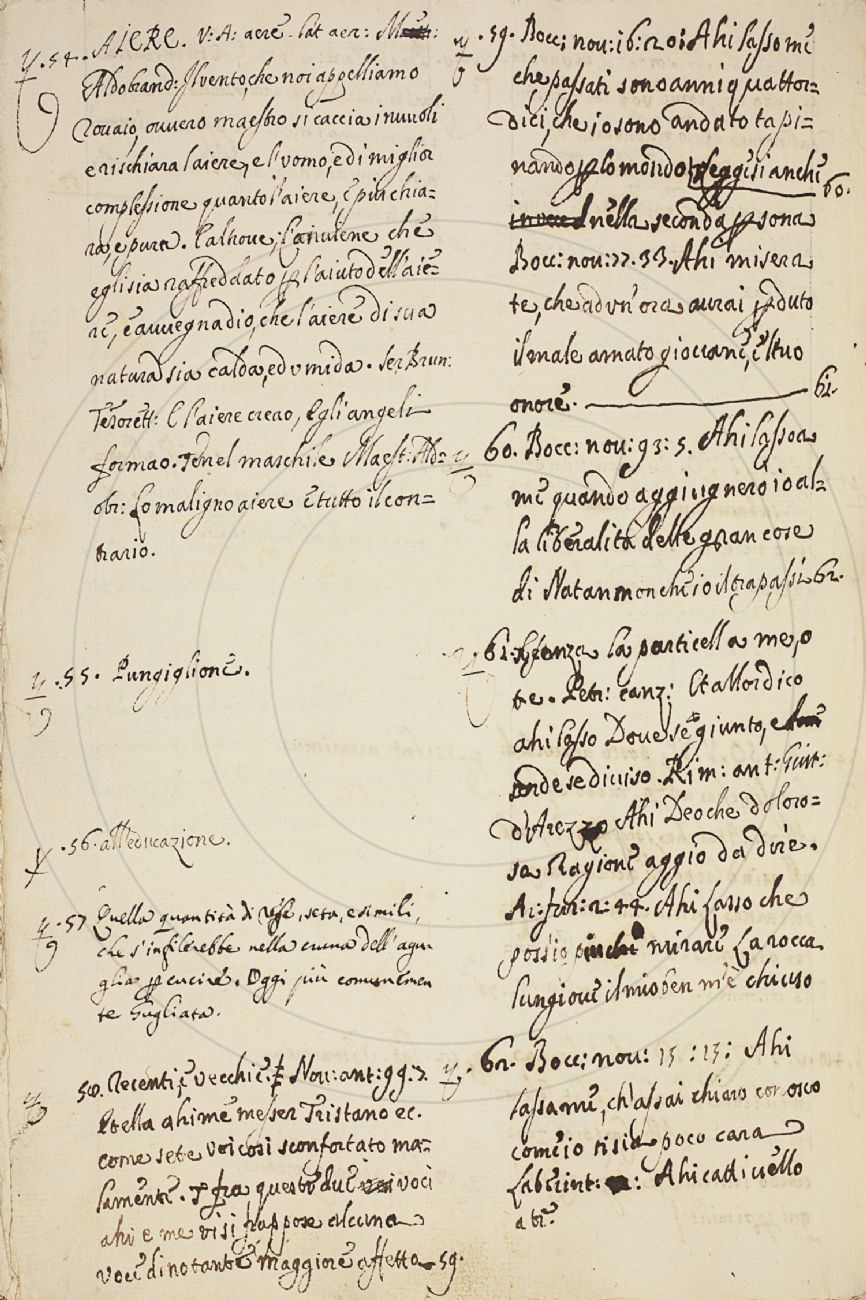 54. AIERE. V: A: aere. lat aer: M
Aldobrand: Il vento, che noi appelliamo
rovaio, ovvero maestro si caccia i nuvoli
e rischiara l'aiere, e l'uomo, e di miglior
complessione quanto l'aiere, è più chia-
ra, e pura. E altrove; conviene che
egli sia raffreddato p l'aiuto dell'aie-
re, e avvegnadio, che l'aiere di sua
natura sia calda, ed umida. Ser Brun:
Tesorett: E l'aiere creao, E gli angeli
formao. nel maschile Maest: Ald-
obr: Lo maligno aiere è tutto il con-
trario.
55. Pungiglione.
56. all'educazione.
57 Quella quantità di refe, seta, e simili,
che s'infilerebbe nella cruna dell'agu-
glia p cucire. Oggi più comunemen
te Gugliata.
58. Recenti, e vecchie. Nov: ant: 99. 7.
Et ella ahime messer Tristano ec.
come sete voi così sconfortato ma-
lamente. fra queste due voci
ahi e me vi si frappose alcuna
voce dinotante maggiore affetto 59.
59. Bocc: nou: 16: 20: Ahi lasso me
che passati sono anni quattor-
dici, che io sono andato tapi-
nando p lo mondo leggesi anche 60.
nella seconda p sona
Bocc: nou: 77. 33. Ahi misera
te, che ad un' ora aurai pduto
il male amato giovane, e 'l tuo
onore. 61.
60. Bocc: nou: 93: 5. Ahi lasso a
me quando aggiugnero io al-
la liberalità delle gran cose
di Natan non che io il trapassi 62.
61. Senza la particella me, o
te. Petr: canz: Et allor dico
ahi lasso Dove se giunto, e
onde se diviso. Rim: ant: Guit:
d'Arezzo Ahi Deo che doloro-
sa Ragione aggio da dire.
Ar: fur: 2: 44. Ahi lasso che
poss'io più che mirare La rocca
lungi ove il mio ben m'è chiuso
62. Bocc: nou: 15: 15: Ahi
lassa me, ch'assai chiaro conosco
com'io ti sia poco cara
Laberint: Ahi cadivello
a te.